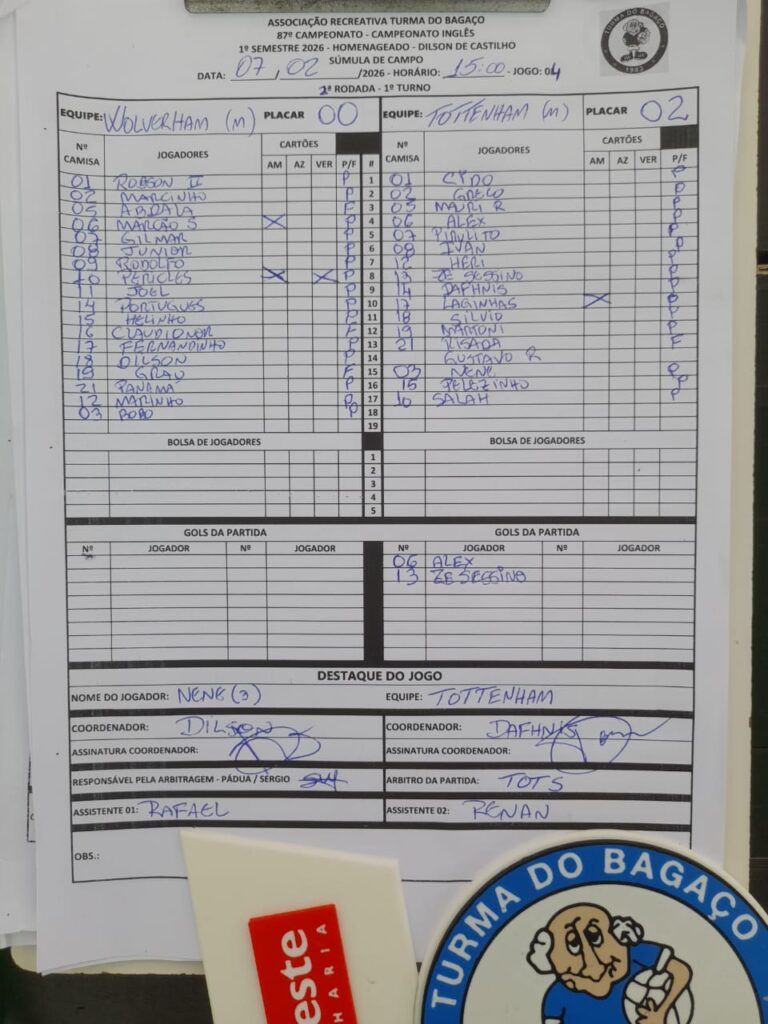 ASSOCIAÇÃO RECREATIVA TURMA DO BAGAÇO
87º CAMPEONATO - CAMPEONATO INGLÊS
1º SEMESTRE 2026 - HOMENAGEADO - DILSON DE CASTILHO
SÚMULA DE CAMPO
DATA: 07, 02 /2026 - HORÁRIO: 15:00 - JOGO: 04
2ª RODADA - 1º TURNO
EQUIPE: WOLVERHAM (M) PLACAR 00 EQUIPE: TOTTENHAM (M) PLACAR 02
Nº CAMISA JOGADORES CARTÕES AM AZ VER P/F # Nº CAMISA JOGADORES CARTÕES AM AZ VER P/F
01 ROBSON II P 1 01 P
02 MARCINHO P 2 02 GRECO P
05 ABDALA F 3 05 MAURI R P
06 MARCÃO S X P 4 06 ALEX P
07 GILMAR P 5 07 PIRULITO P
08 JUNIOR P 6 08 IVAN P
09 RODOLFO P 7 12 HERI P
10 PERICLES X X P 8 13 ZE SESSINO P
11 JOEL P 9 14 DAFHNIS P
14 PORTUGUES P 10 17 LAGINHAS X P
15 HELINHO P 11 18 SILVIO P
16 CLAUDIONOR F 12 19 MANTONI P
17 FERNANDINHO P 13 21 F
18 DILSON P 14 GUSTAVO R
19 GRAU F 15 03 NENE P
21 PANAMÁ P 16 15 PELEZINHO P
12 MARINHO P 17 10 SALAH P
03 BOBO P 18
19
BOLSA DE JOGADORES BOLSA DE JOGADORES
1
2
3
4
5
GOLS DA PARTIDA GOLS DA PARTIDA
Nº JOGADOR Nº JOGADOR Nº JOGADOR Nº JOGADOR
06 ALEX
13 ZE SESSINO
DESTAQUE DO JOGO
NOME DO JOGADOR: NENE (3) EQUIPE: TOTTENHAM
COORDENADOR: DILSON COORDENADOR: DAFHNIS
ASSINATURA COORDENADOR: ASSINATURA COORDENADOR:
RESPONSÁVEL PELA ARBITRAGEM - PÁDUA / SÉRGIO ARBITRO DA PARTIDA: TOTS
ASSISTENTE 01: RAFAEL ASSISTENTE 02: RENAN
OBS.:
TURMA DO BAGAÇO
este
HARIA